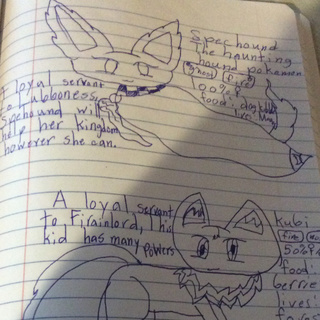 Spechound
The haunting
hound pokemon
ghost fire
100% f
food: dog
A loyal servant
to Lubboness,
Spechound will
help her kingdom
however she can.
A loyal servant
to Firainlord, his
kid has many powers
Kubi
fire
50%
food:
berrie
lives: